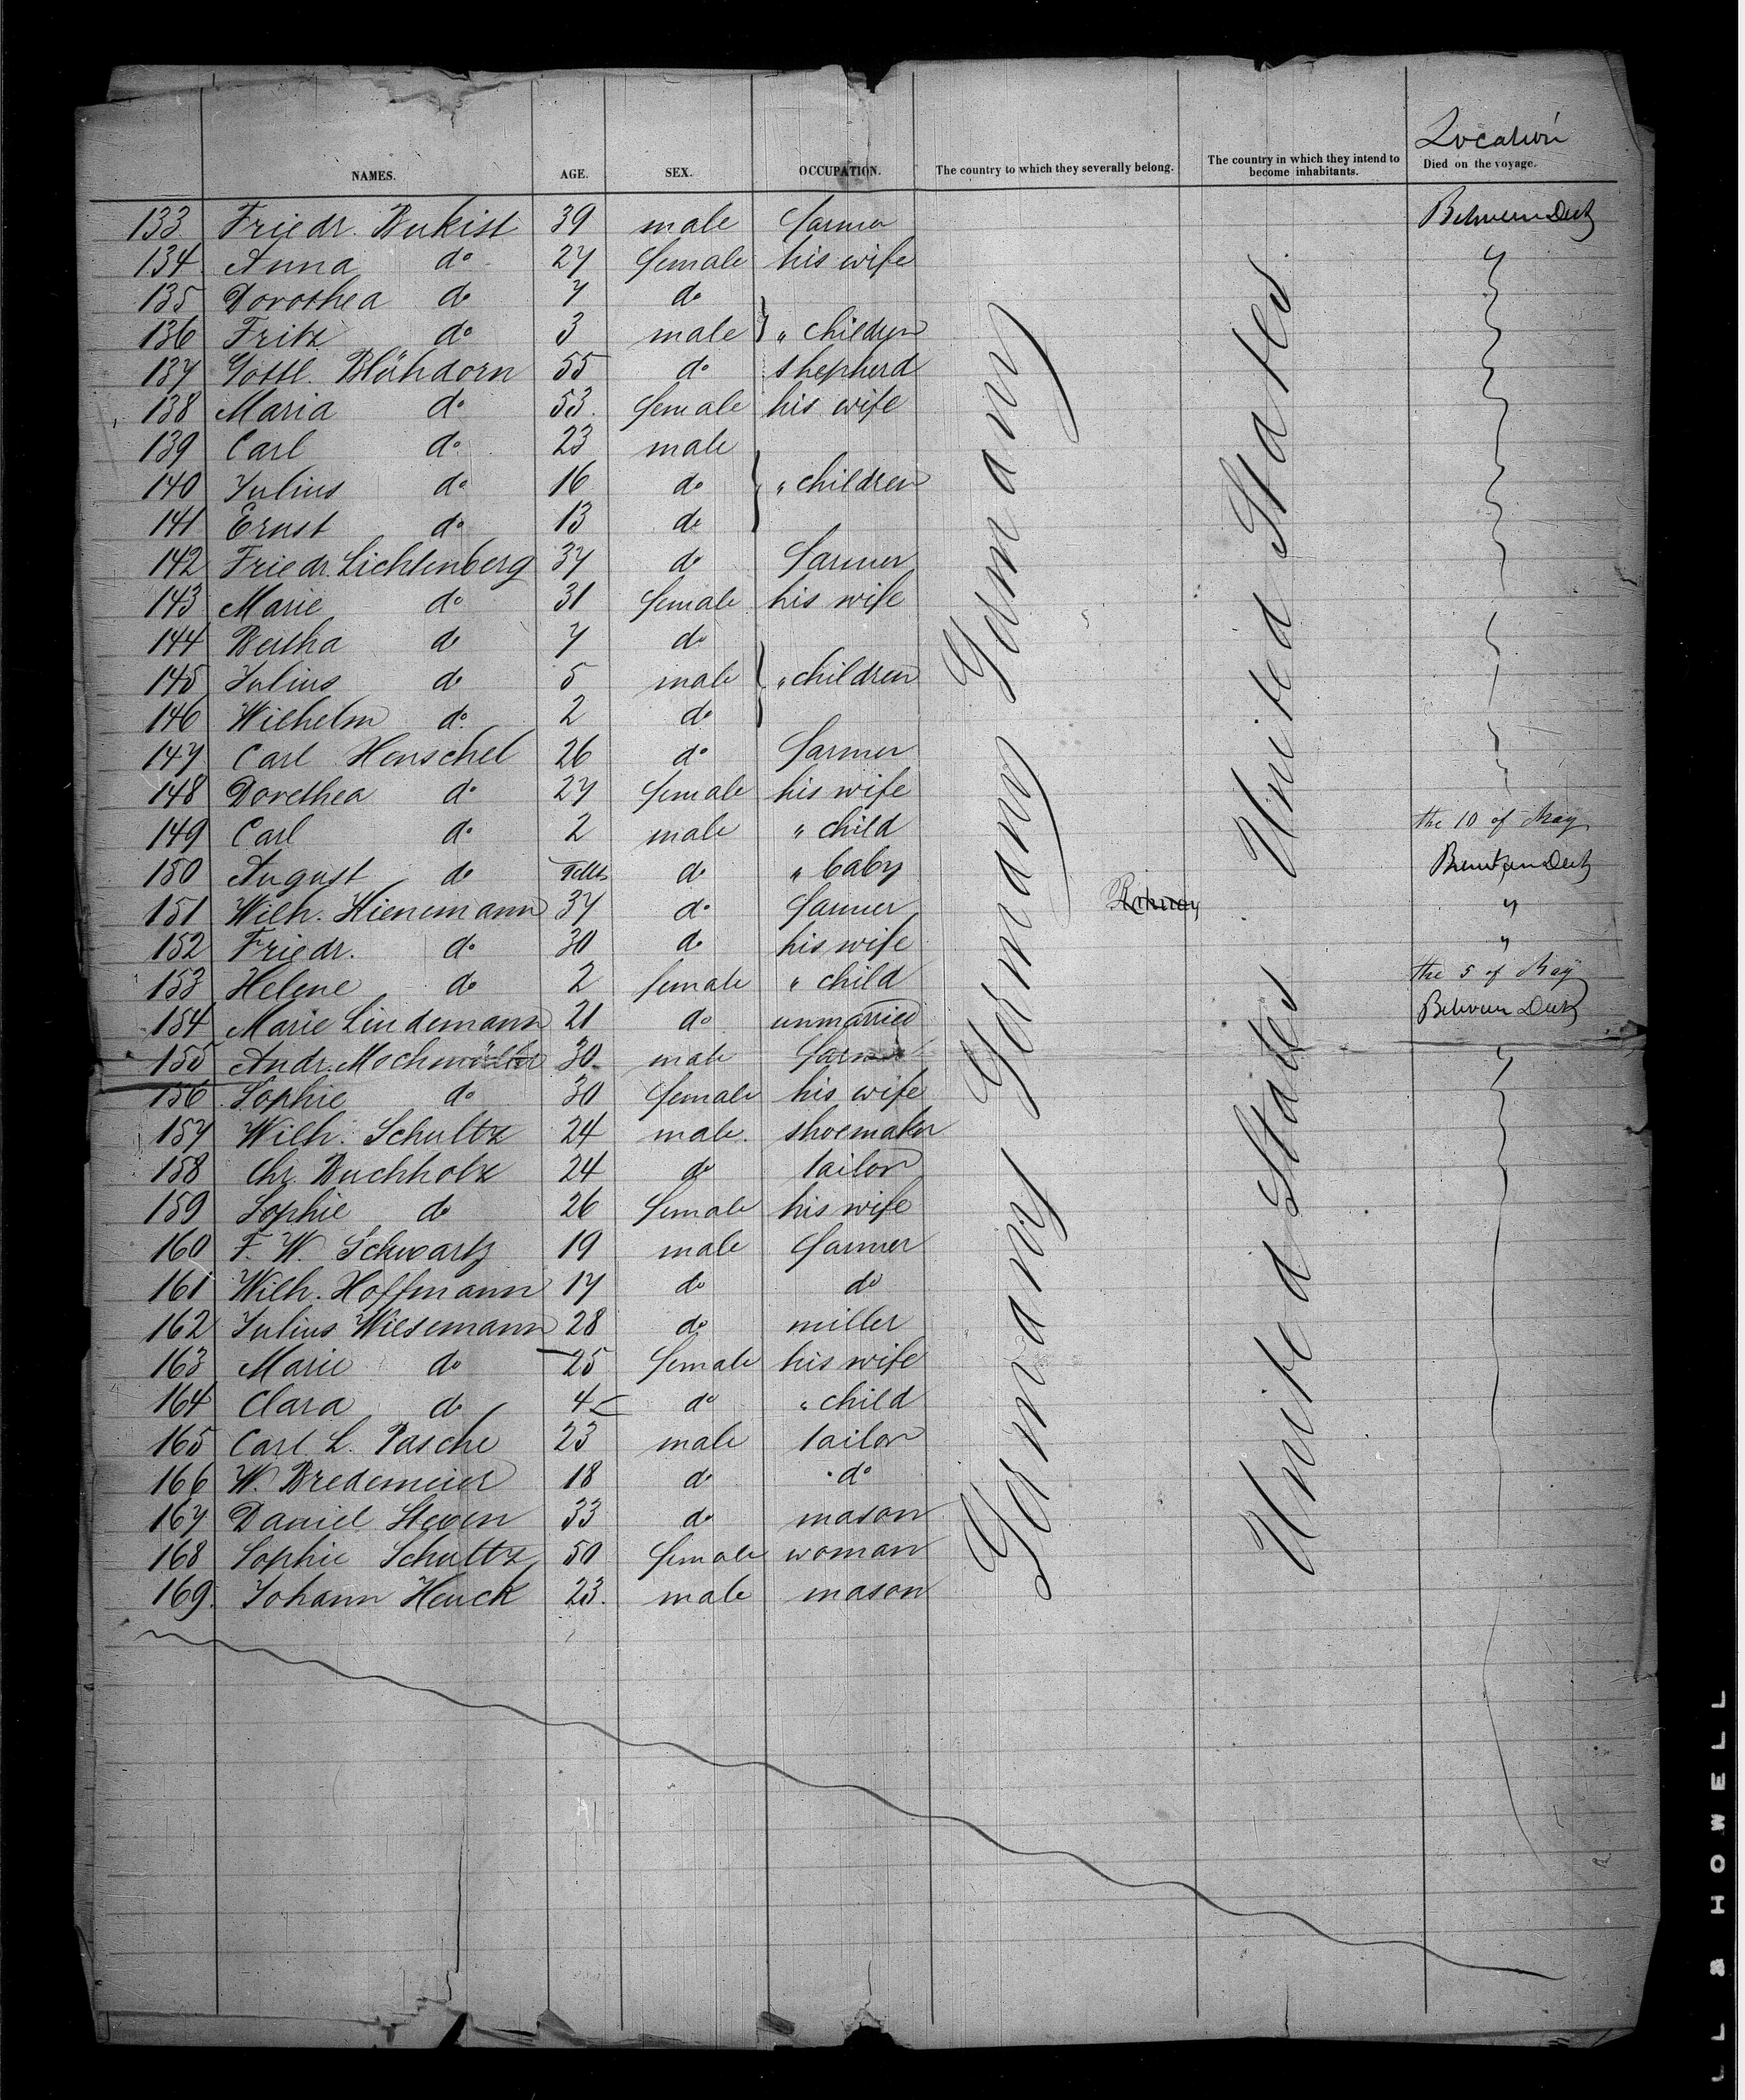 Location
NAMES. AGE. SEX. OCCUPATION. The country to which they severally belong. The country in which they intend to become inhabitants. Died on the voyage.
133 Friedr. Bukist 39 male farmer Between Deck
134 Anna do 27 female his wife "
135 Dorothea do 7 do
136 Fritz do 3 male } " children
137 Gottl. Blühdorn 55 do shepherd
138 Maria do 53. female his wife
139 Carl do 23 male
140 Julius do 16 do } " children
141 Ernst do 13 do
142 Friedr. Lichtenberg 37 do farmer
143 Marie do 31 female his wife
144 Bertha do 7 do
145 Julius do 5 male } " children
146 Wilhelm do 2 do
147 Carl Henschel 26 do farmer
148 Dorethea do 27 female his wife
149 Carl do 2 male " child the 10 of May
150 August do do " baby Between Deck
151 Wilh. Hienemann 37 do farmer "
152 Friedr. do 30 do his wife "
153 Helene do 2 female " child the 5 of May
154 Marie Lindemann 21 do unmarried Between Deck
155 Andr. Mochmüller 30 male farmer "
156 Sophie do 30 female his wife
157 Wilh. Schultz 24 male. shoemaker
158 Chr. Buchholz 24 do tailor
159 Sophie do 26 female his wife
160 F. W. Schwartz 19 male farmer
161 Wilh. Hoffmann 17 do do
162 Julius Wiesemann 28 do miller
163 Marie do 25 female his wife
164 Clara do 4 do " child
165 Carl L. Pasche 23 male tailor
166 W. Bredemeier 18 do do
167 Daniel Steven 33 do mason
168 Sophie Schultz 50 female woman
169. Johann Heuck 23. male mason
Germany Germany Germany
United States United States
LL & HOWELL